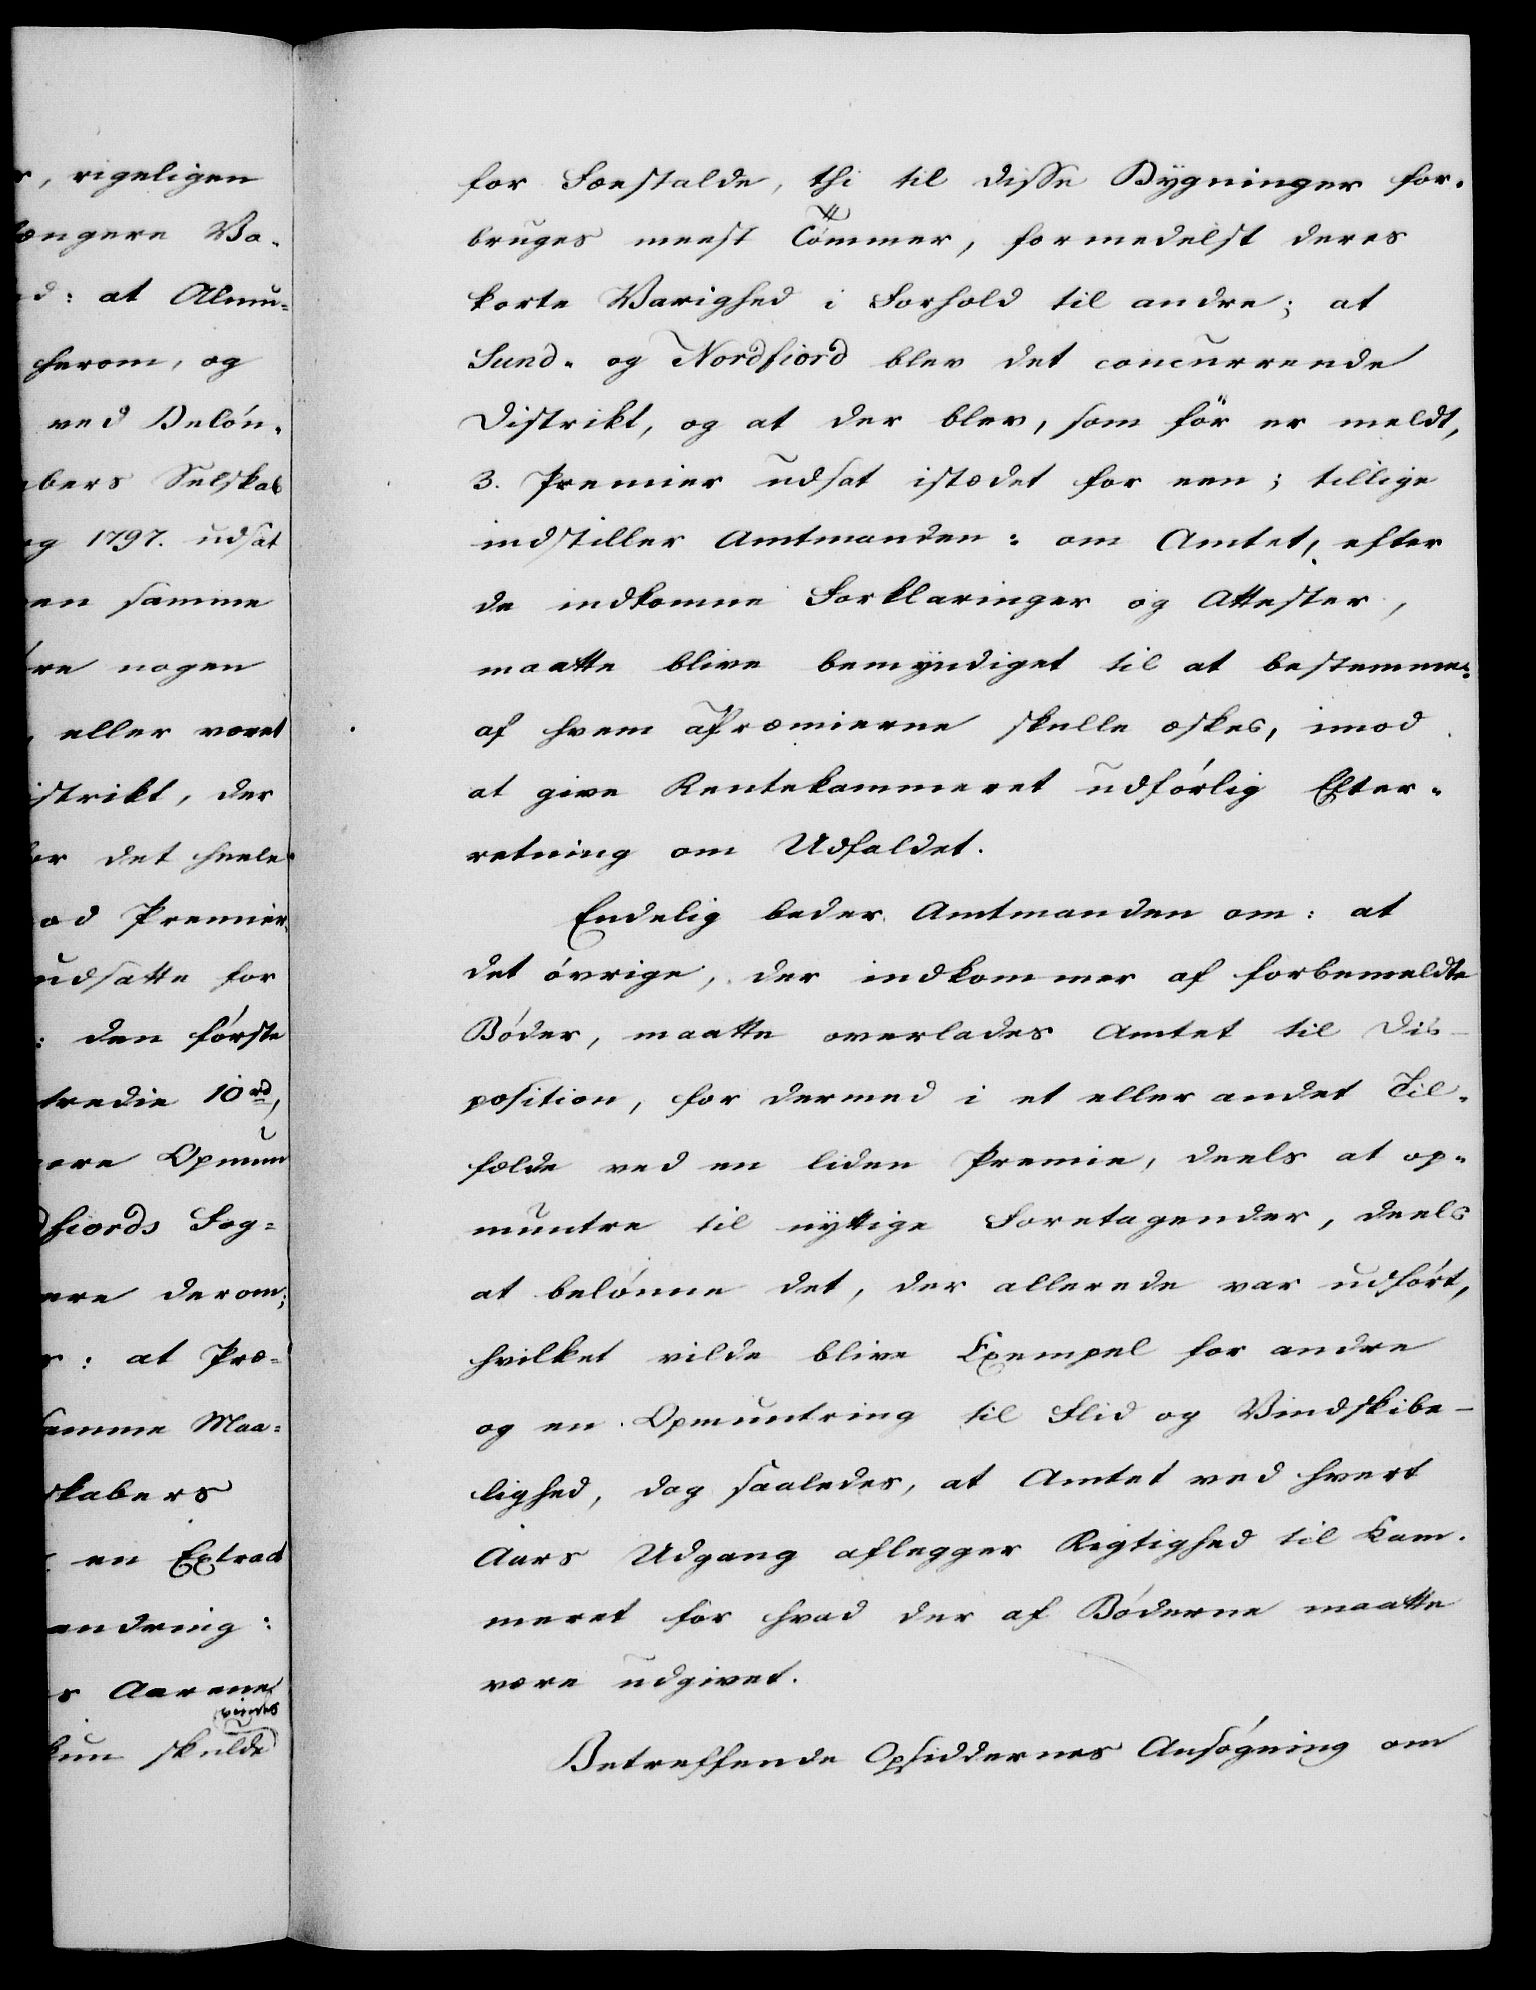 r, rigeligen
længere Va-
d: at Almu-
herom, og
ved Belön-
bers Selskab
og 1797. udsat
en samme
re nogen
, eller været
istrikt, der
for det heele
od Premier
udsatte for
: den förste
tredie 10 rd,
ere Opmun
dfiords Fog-
ere derom;
r: at Præ-
samme Maa-
skabers
en Extract
andring:
s Aarene
vindes
kun skulde
for Fæestalde, thi til disse Bygninger for-
bruges meest Tömmer, formedelst deres
korte Varighed i Forhold til andre; at
Sund- og Nordfiord blev det concurrende
Distrikt, og at der blev, som för er meldt,
3. Premier udsat istædet for een; tillige
indstiller Amtmanden: om Amtet, efter
de indkomne Forklaringer og Attester,
maatte blive bemyndiget til at bestemme:
af hvem Præmierne skulle æskes, imod
at give Rentekammeret udförlig Efter-
retning om Udfaldet.
Endelig beder Amtmanden om: at
det övrige, der indkommer af forbemeldte
Böder, maatte overlades Amtet til Dis-
position, for dermed i et eller andet Til-
fælde ved en liden Premie, deels at op-
muntre til nyttige Foretagender, deels
at belönne det, der allerede var udfört,
hvilket vilde blive Exempel for andre
og en Opmuntring til Flid og Vindskibe-
lighed, dog saaledes, at Amtet ved hvert
Aars Udgang aflegger Rigtighed til Kam-
meret for hvad der af Böderne maatte
være udgivet.
Betreffende Opsiddernes Ansögning om